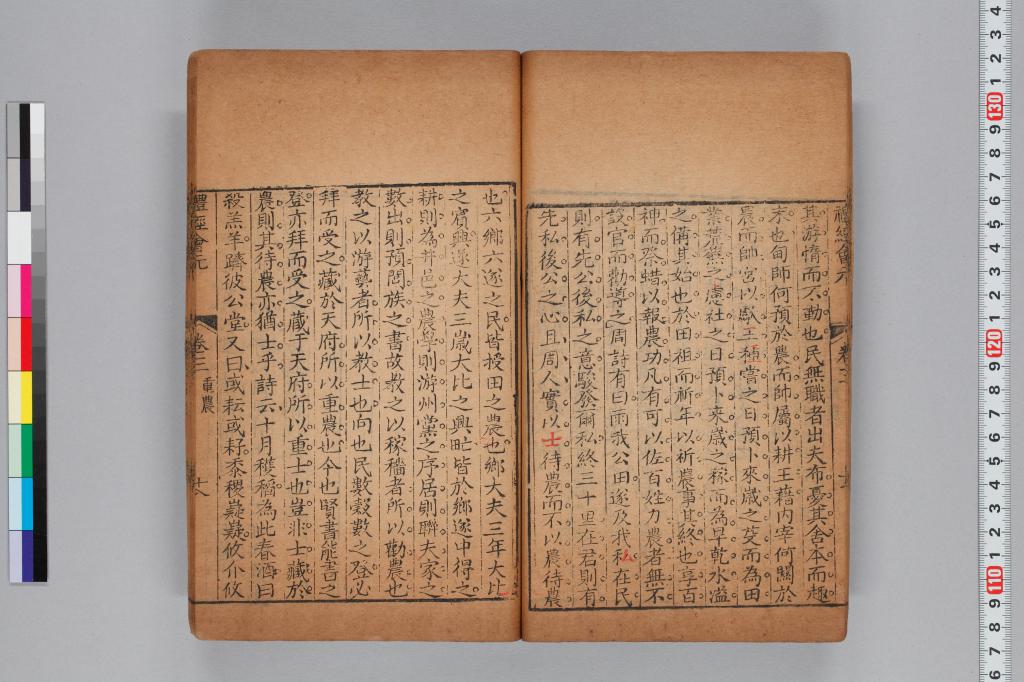 其游惰而不動也民無職者出夫布憂其舍本而趨
末也甸師何預於農而師屬以耕王藉内宰何關於
農而帥宮以獻王種嘗之日預卜來歲之芟而為田
業荒蕪之慮社之日預卜來歲之稼而為旱乾水溢
之備其始也於田祖而祈年以祈農事其終也享百
神而祭蜡以報農功凡有可以佐百姓力農者無不
設官而勸導之周詩有曰雨我公田遂及我私在民
則有先公後私之意駿發爾私終三十里在君則有
先私後公之心且周人實以士待農而不以農待農
禮經會元
卷三
也六鄉六遂之民皆授田之農也鄉大夫三年大比
之賓興遂大夫三歲大比之興甿皆於鄉遂中得之
耕則為井邑之農學則游州黨之序居則聯夫家之
數出則預閭族之書故教之以稼穡者所以勸農也
教之以游藝者所以教士也向也民數穀數之登必
拜而受之藏於天府所以重農也今也賢書能書之
登亦拜而受之藏于天府所以重士也豈非士藏於
農則其待農亦猶士乎詩六十月穫稻為此春酒曰
殺羔羊躋彼公堂又曰或耘或耔黍稷薿薿攸介攸
禮經會元
卷三
重農
十八